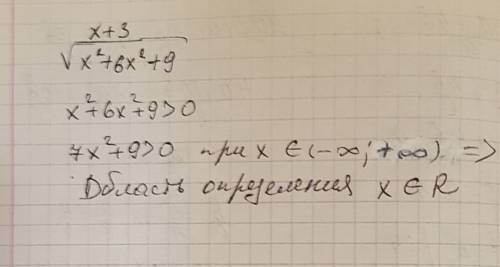 x+3
√x²+6x²+9
x²+6x²+9>0
7x²+9>0 при x ∈ (-∞; +∞) =>
Область определения x ∈ R